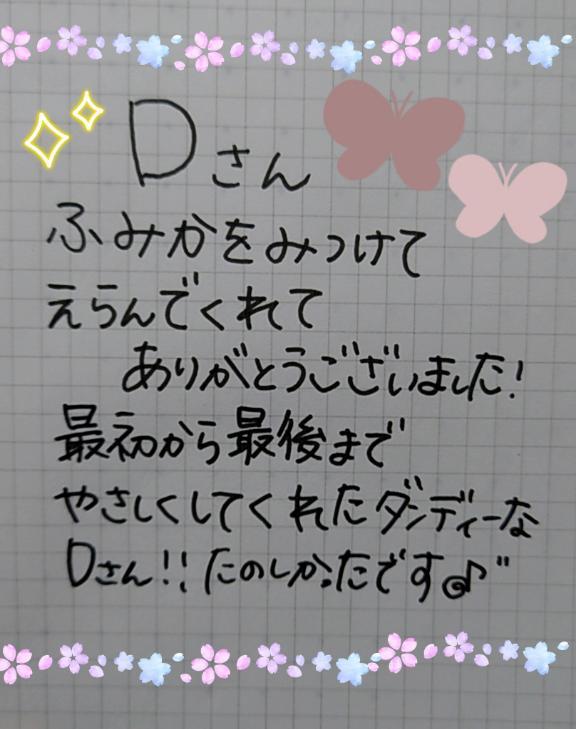 Dさん
ふみかをみつけて
えらんでくれて
ありがとうございました!
最初から最後まで
やさしくしてくれたダンディーな
Dさん!!たのしかったです♪"